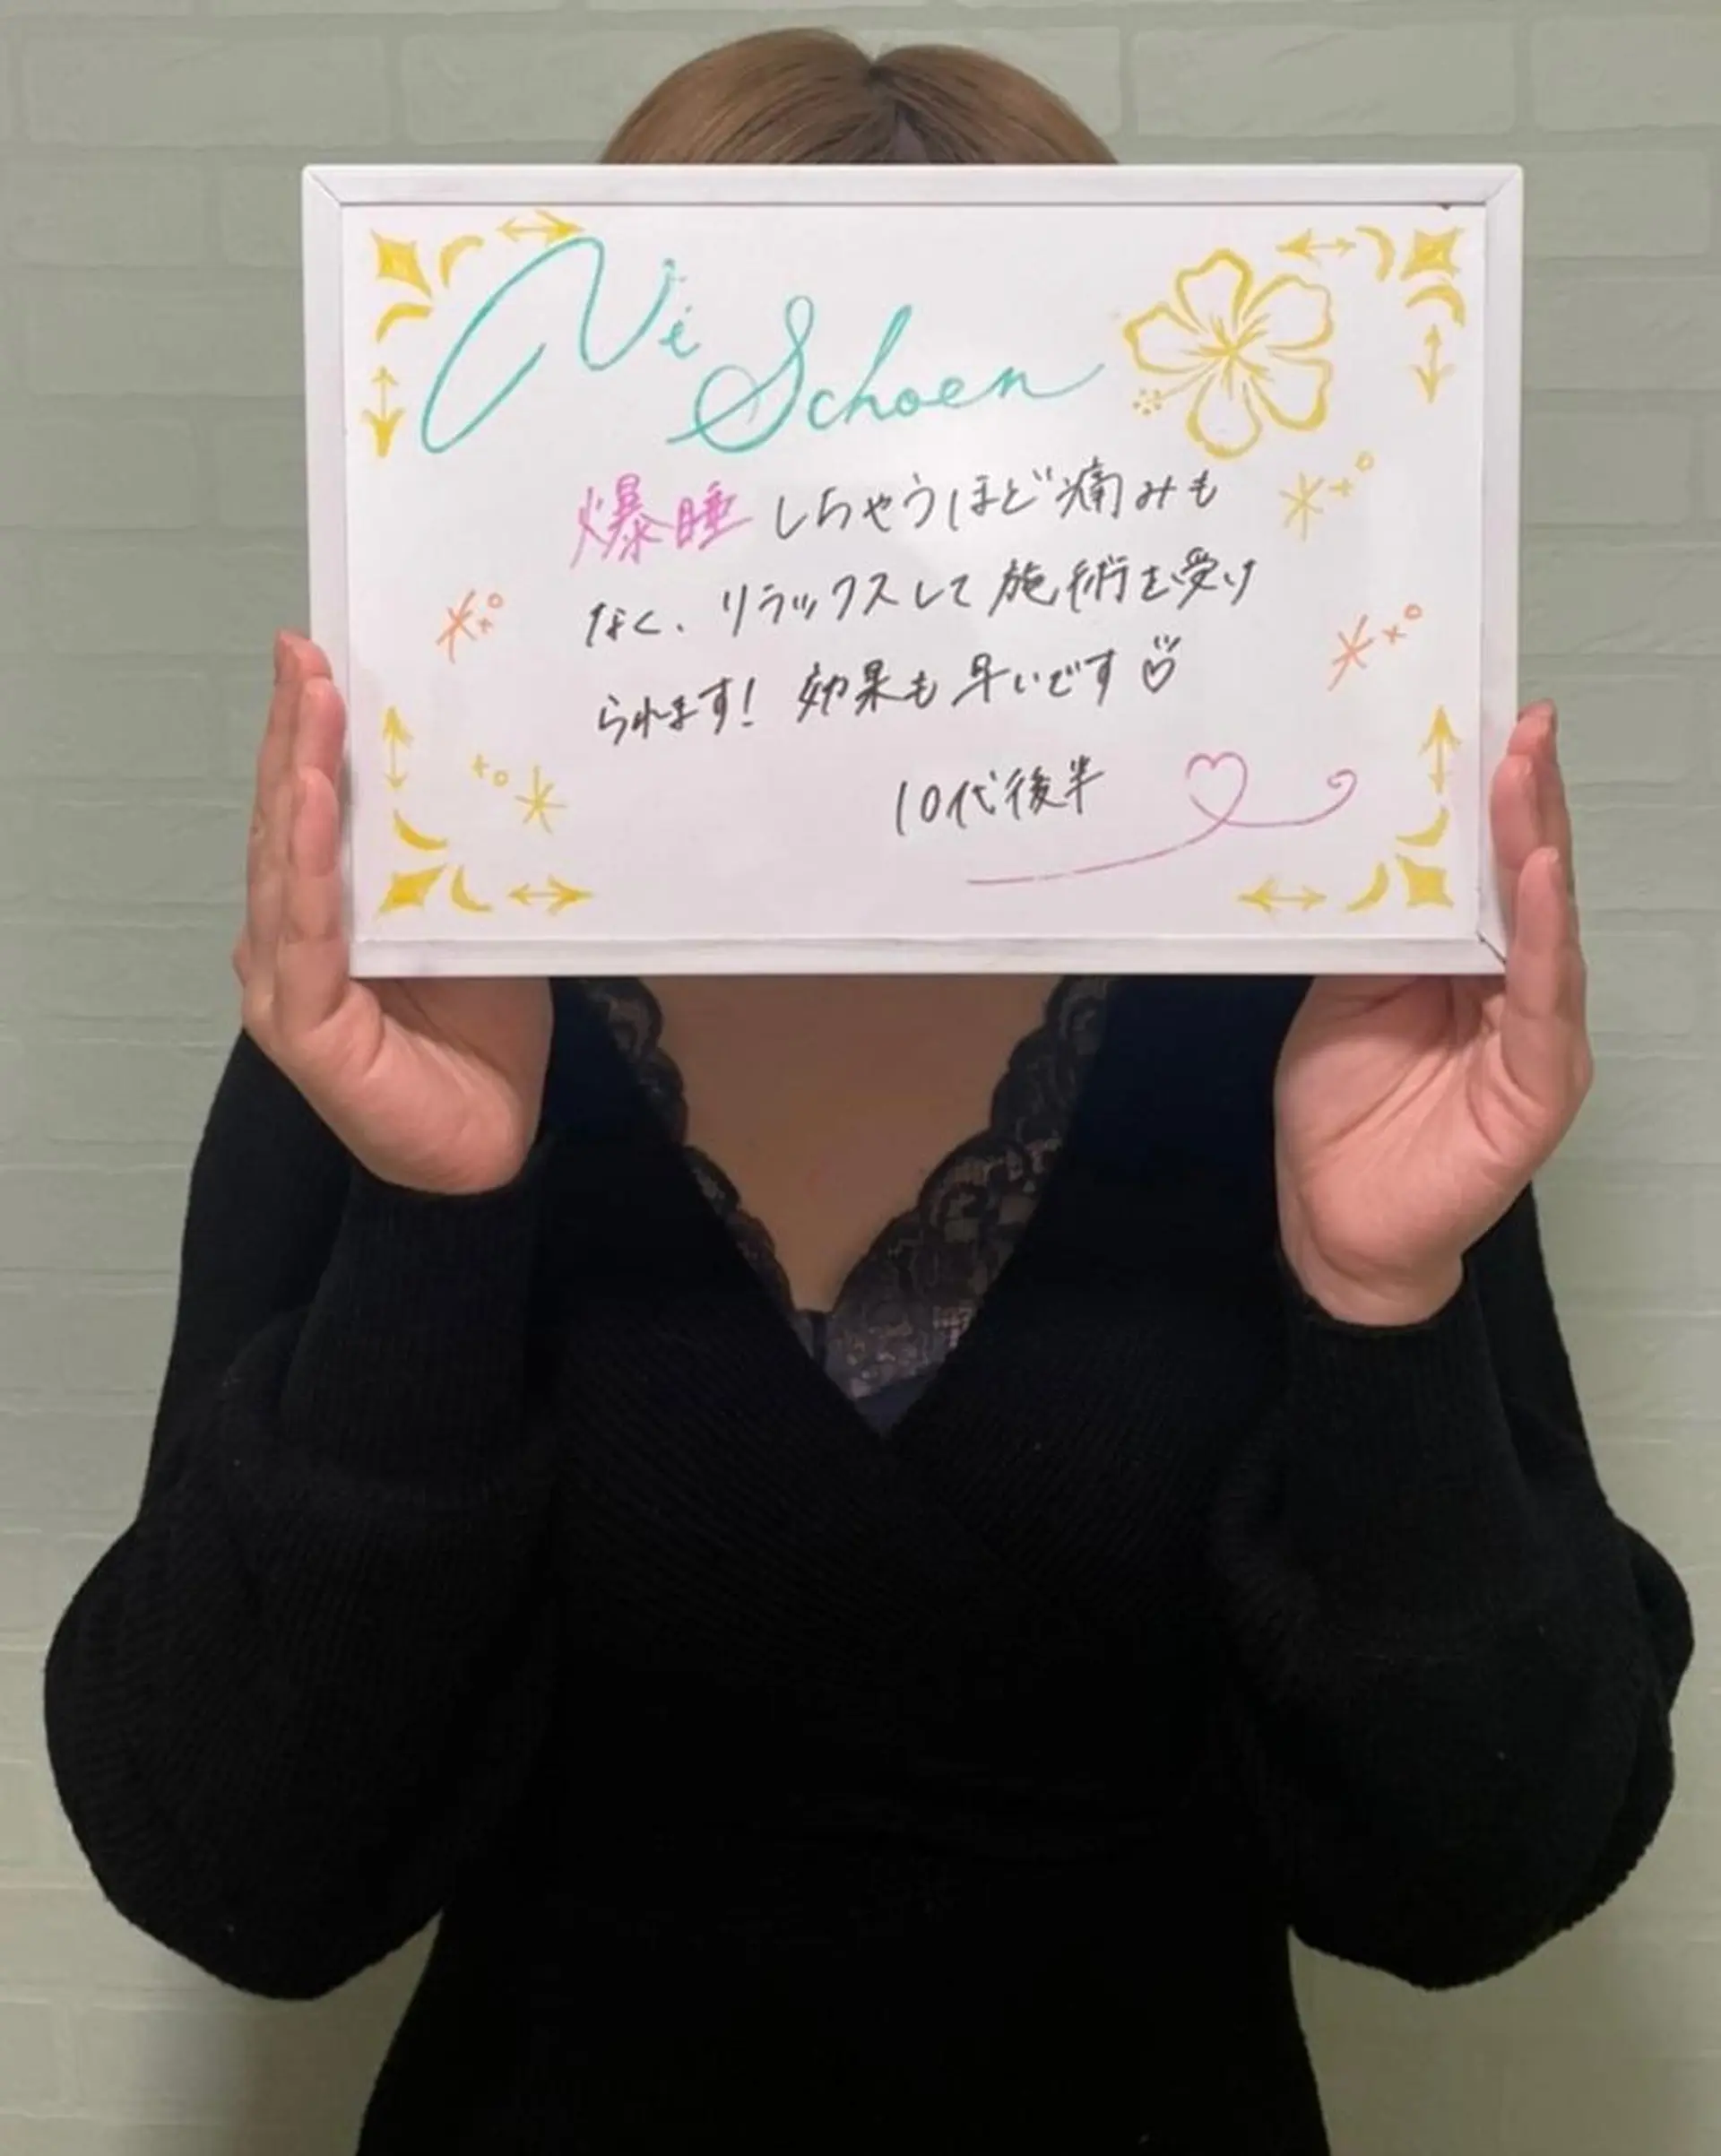 Ni Schoen
爆睡しちゃうほど痛みも
なく、リラックスして施術を受け
られます！効果も早いです♡
10代後半